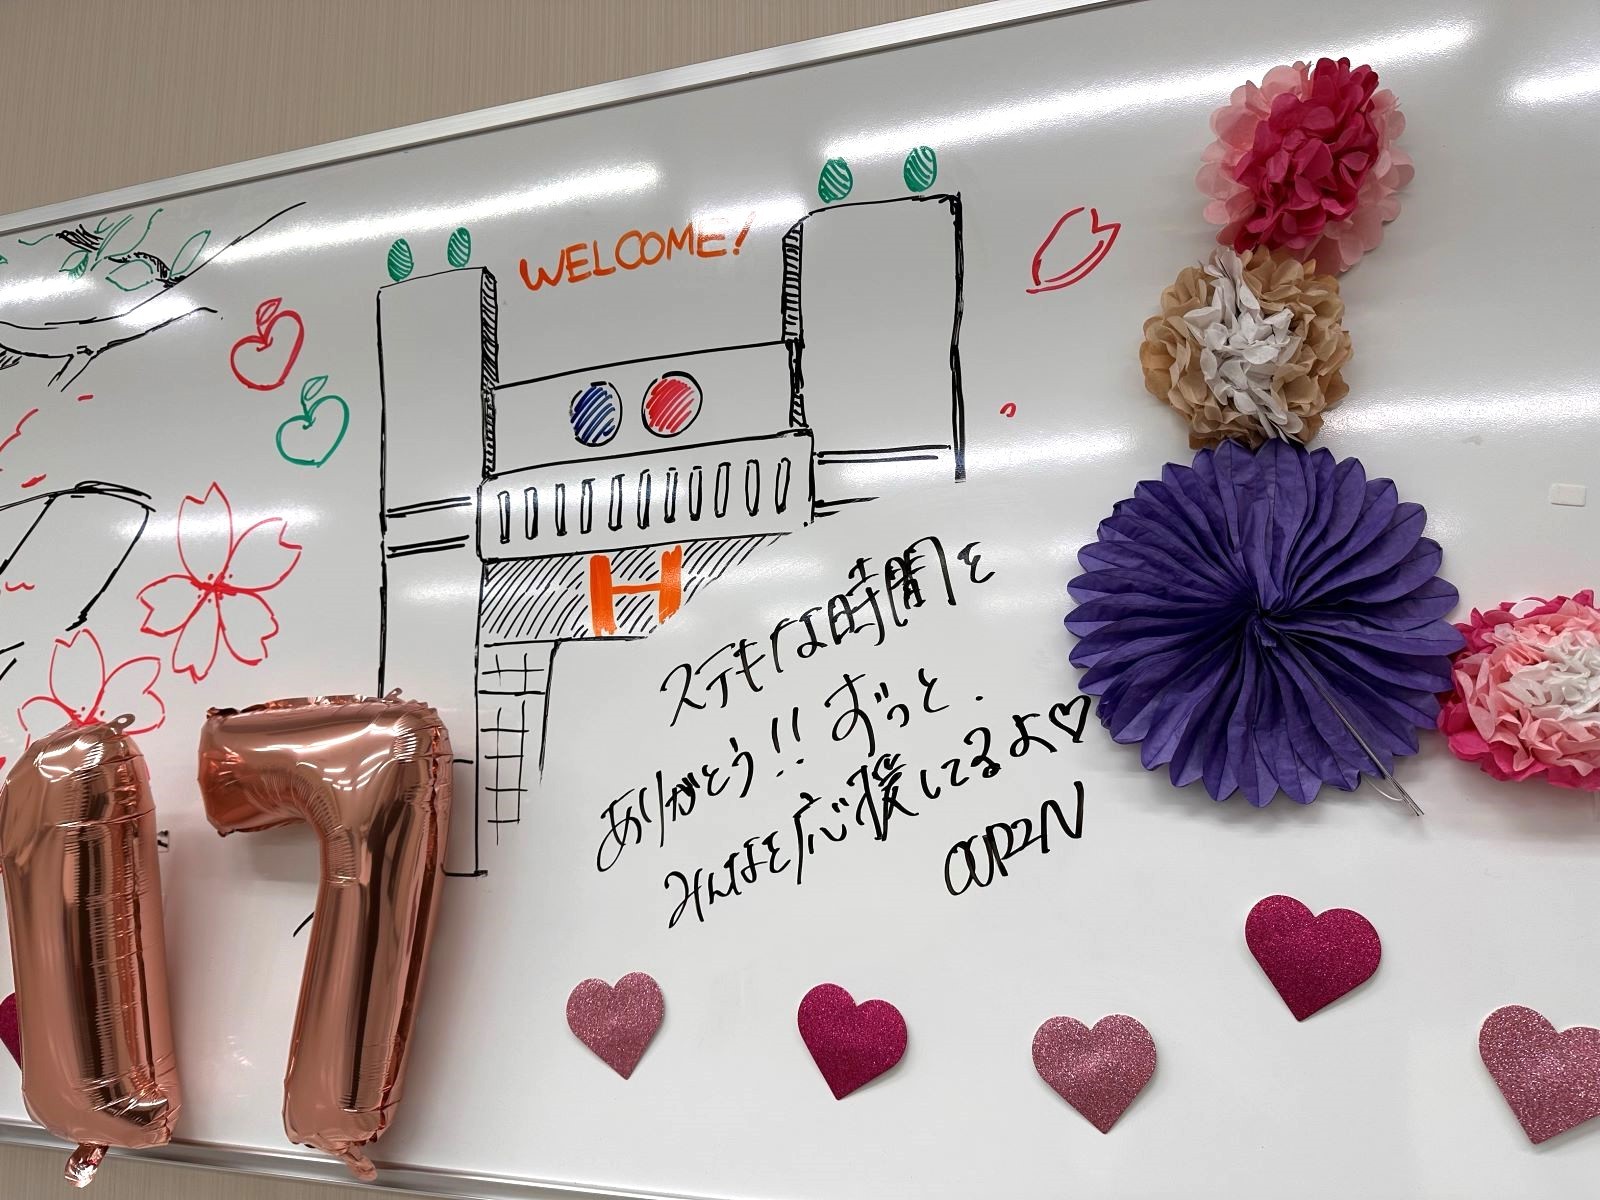 WELCOME!
H
ステキな時間を
ありがとう!! ずっと.
みんなを応援してるよ♡
17